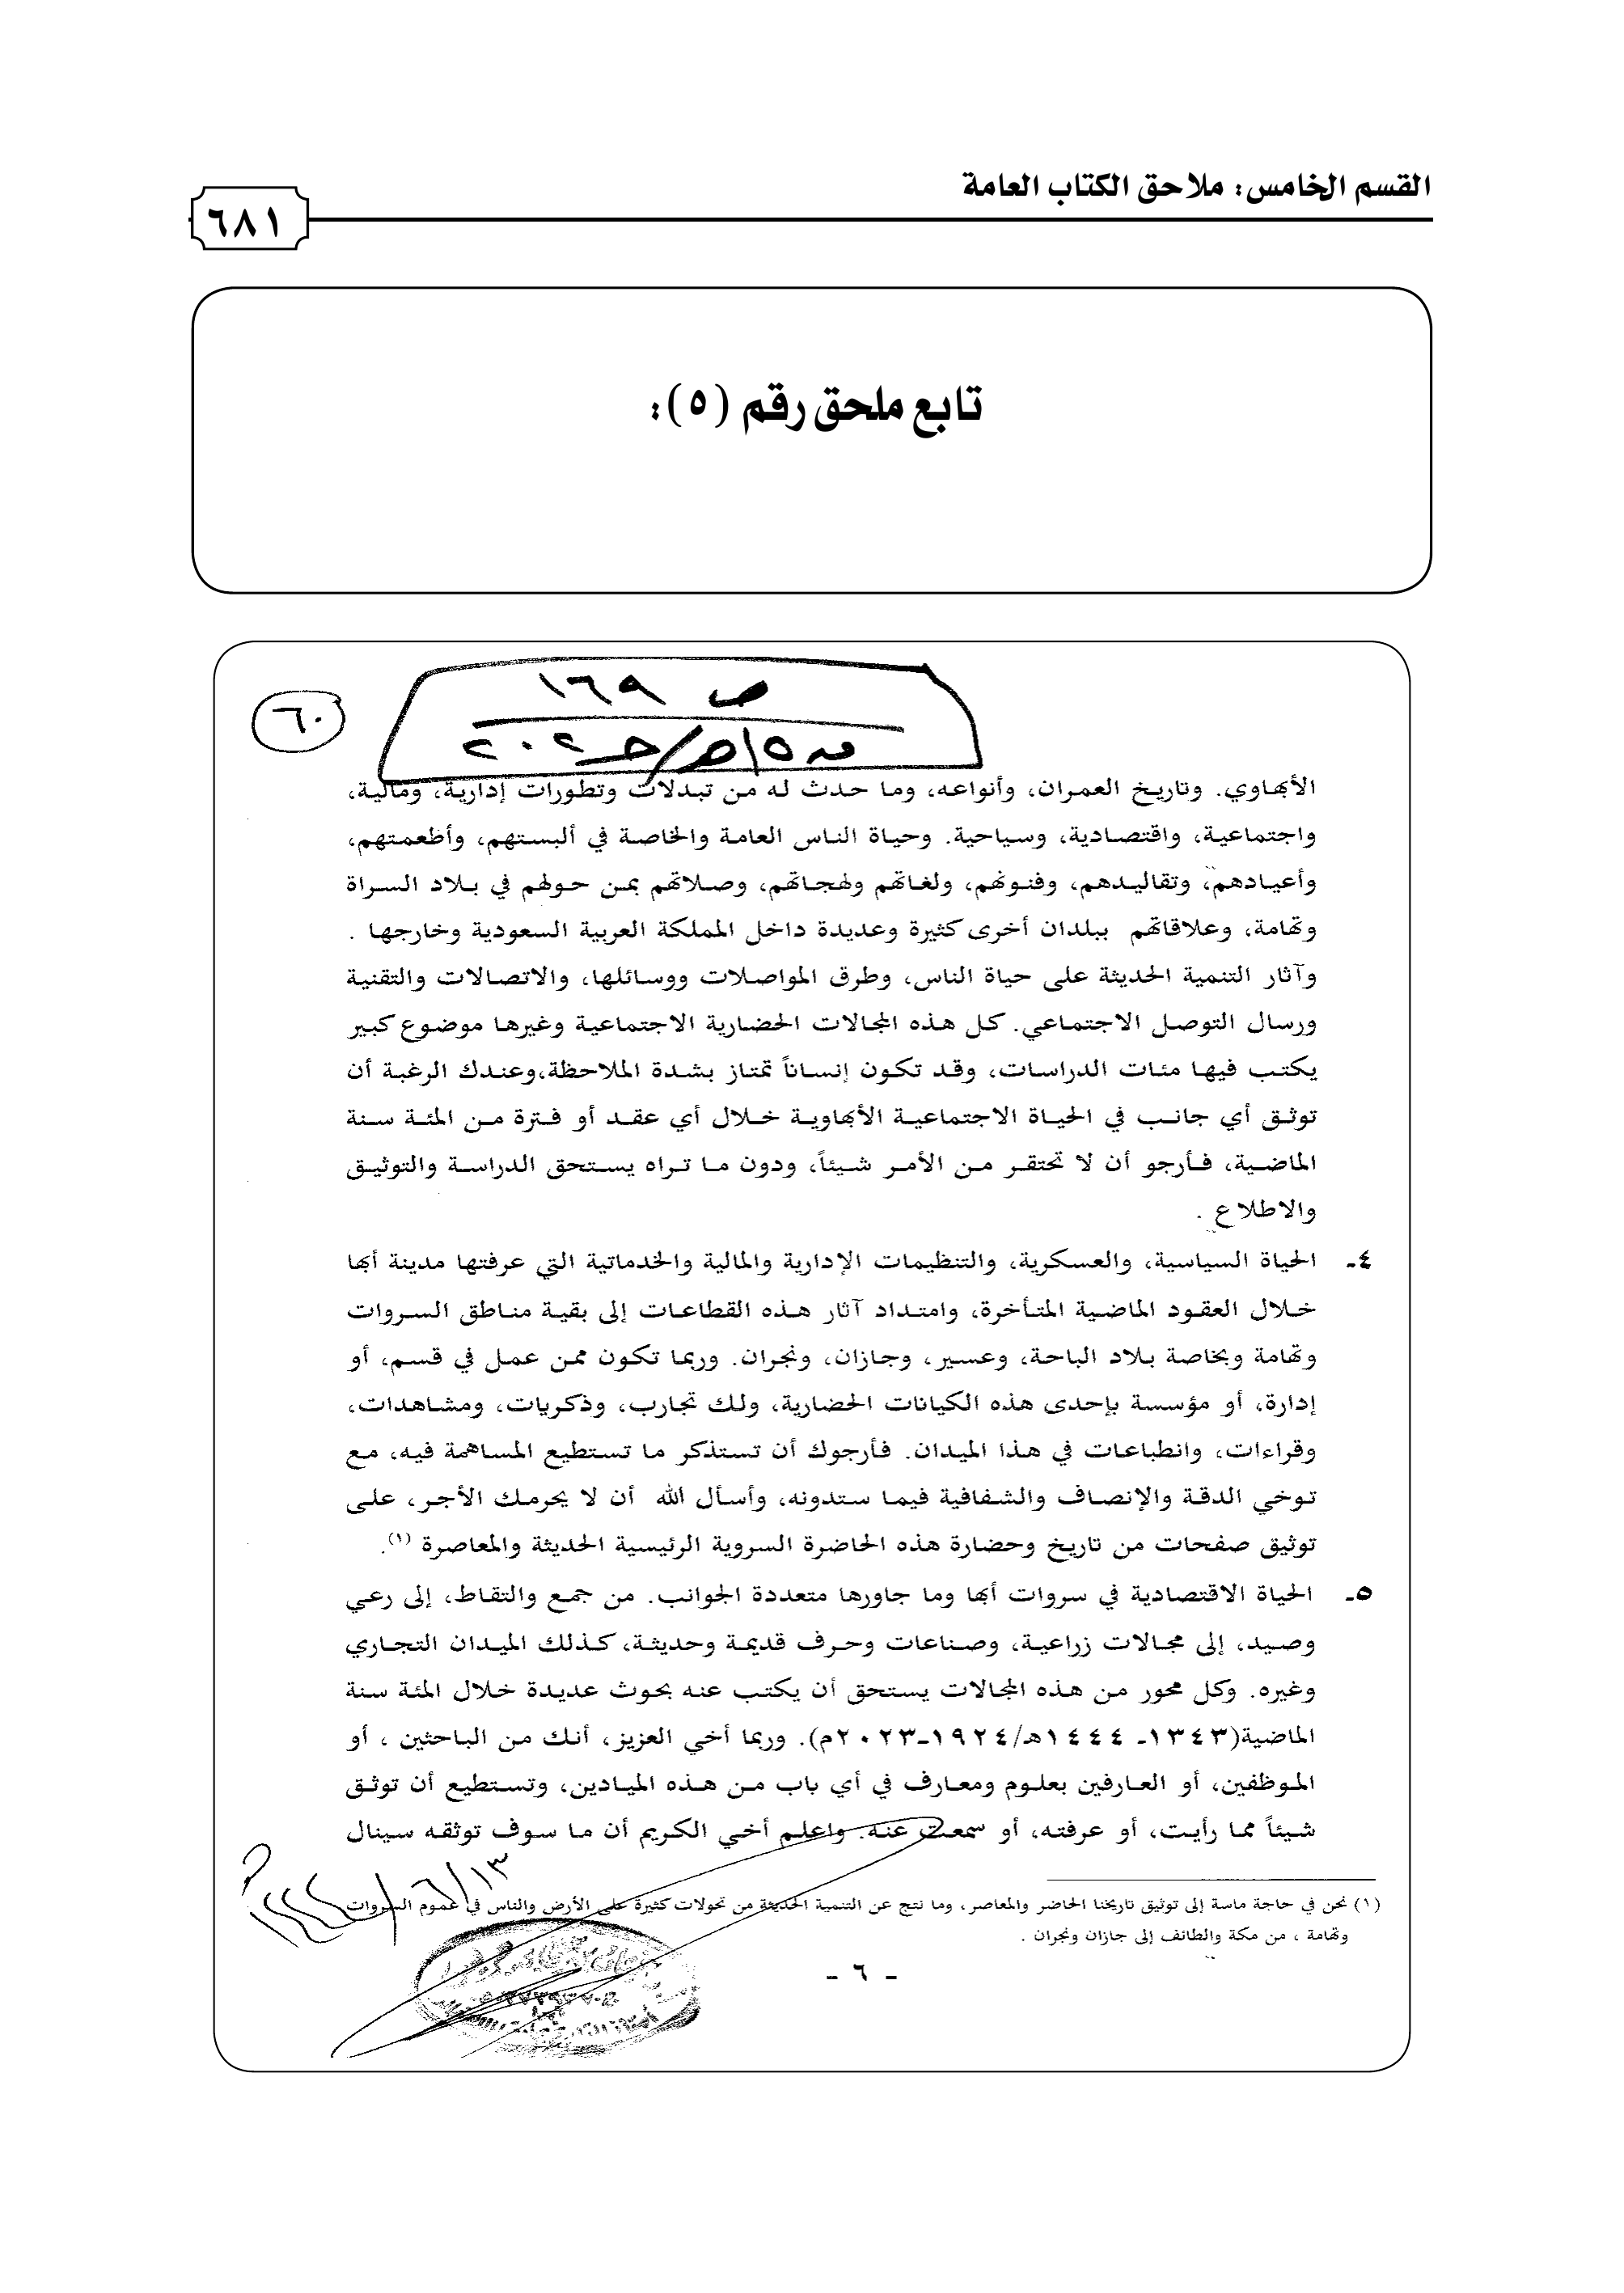 القسم الخامس: ملاحق الكتاب العامة
٦٨١
تابع ملحق رقم (٥):
ص ١٦٩
٦٠
الأبهاوي. وتاريخ العمران، وأنواعه، وما حدث له من تبدلات وتطورات إدارية، ومالية،
واجتماعية، واقتصادية، وسياحية. وحياة الناس العامة والخاصة في ألبستهم، وأطعمتهم،
وأعيادهم، وتقاليدهم، وفنونهم، ولغاتهم ولهجاتهم، وصلاتهم بمن حولهم في بلاد السراة
وتهامة، وعلاقاتهم ببلدان أخرى كثيرة وعديدة داخل المملكة العربية السعودية وخارجها .
وآثار التنمية الحديثة على حياة الناس، وطرق المواصلات ووسائلها، والاتصالات والتقنية
ورسال التوصل الاجتماعي. كل هذه المجالات الحضارية الاجتماعية وغيرها موضوع كبير
يكتب فيها مئات الدراسات، وقد تكون إنساناً تمتاز بشدة الملاحظة،وعندك الرغبة أن
توثق أي جانب في الحياة الاجتماعية الأبهاوية خلال أي عقد أو فترة من المئة سنة
الماضية، فأرجو أن لا تحتقر من الأمر شيئاً، ودون ما تراه يستحق الدراسة والتوثيق
والاطلاع .
٤- الحياة السياسية، والعسكرية، والتنظيمات الإدارية والمالية والخدماتية التي عرفتها مدينة أبها
خلال العقود الماضية المتأخرة، وامتداد آثار هذه القطاعات إلى بقية مناطق السروات
وتهامة وبخاصة بلاد الباحة، وعسير، وجازان، ونجران. وربما تكون ممن عمل في قسم، أو
إدارة، أو مؤسسة بإحدى هذه الكيانات الحضارية، ولك تجارب، وذكريات، ومشاهدات،
وقراءات، وانطباعات في هذا الميدان. فأرجوك أن تستذكر ما تستطيع المساهمة فيه، مع
توخي الدقة والإنصاف والشفافية فيما ستدونه، وأسأل الله أن لا يحرمك الأجر، على
توثيق صفحات من تاريخ وحضارة هذه الحاضرة السروية الرئيسية الحديثة والمعاصرة (١).
٥- الحياة الاقتصادية في سروات أبها وما جاورها متعددة الجوانب. من جمع والتقاط، إلى رعي
وصيد، إلى مجالات زراعية، وصناعات وحرف قديمة وحديثة، كذلك الميدان التجاري
وغيره. وكل محور من هذه المجالات يستحق أن يكتب عنه بحوث عديدة خلال المئة سنة
الماضية(١٣٤٣- ١٤٤٤هـ/١٩٢٤-٢٠٢٣م). وربما أخي العزيز، أنك من الباحثين ، أو
الموظفين، أو العارفين بعلوم ومعارف في أي باب من هذه الميادين، وتستطيع أن توثق
شيئاً مما رأيت، أو عرفته، أو سمعت عنه. واعلم أخي الكريم أن ما سوف توثقه سينال
(١) نحن في حاجة ماسة إلى توثيق تاريخنا الحاضر والمعاصر، وما نتج عن التنمية الحديثة من تحولات كثيرة على الأرض والناس في عموم السروات
وتهامة ، من مكة والطائف إلى جازان ونجران .
- ٦ -